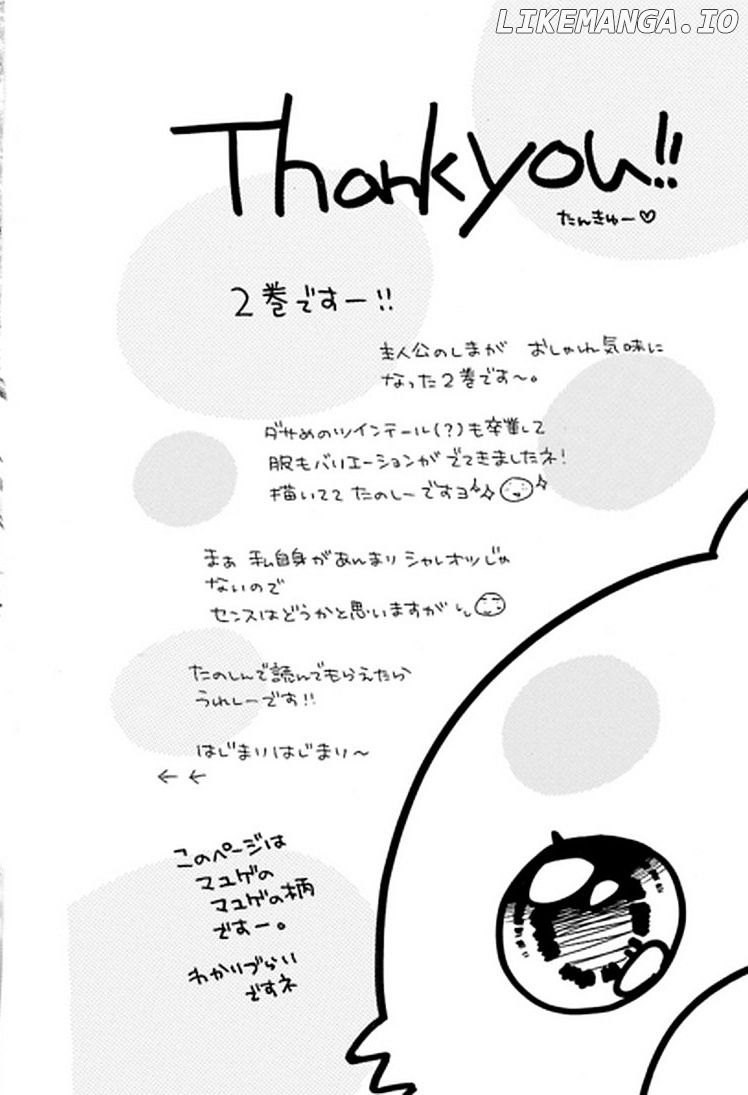 LIKEMANGA.IO
Thank you!!
たんきゅー♡
2巻ですー!!
主人公のしまが おしゃれ気味に
なった2巻です〜。
ダサめのツインテール(?)も卒業して
服もバリエーションがでてきましたネ!
描いてて たのしーですヨ
まぁ 私自身があんまり シャレオツじゃ
ないので
センスはどうかと思いますが
たのしんで読んでもらえたら
うれしーです!!
はじまりはじまり〜
← ←
このページは
マユゲの
マユゲの柄
ですー。
わかりづらい
ですネ